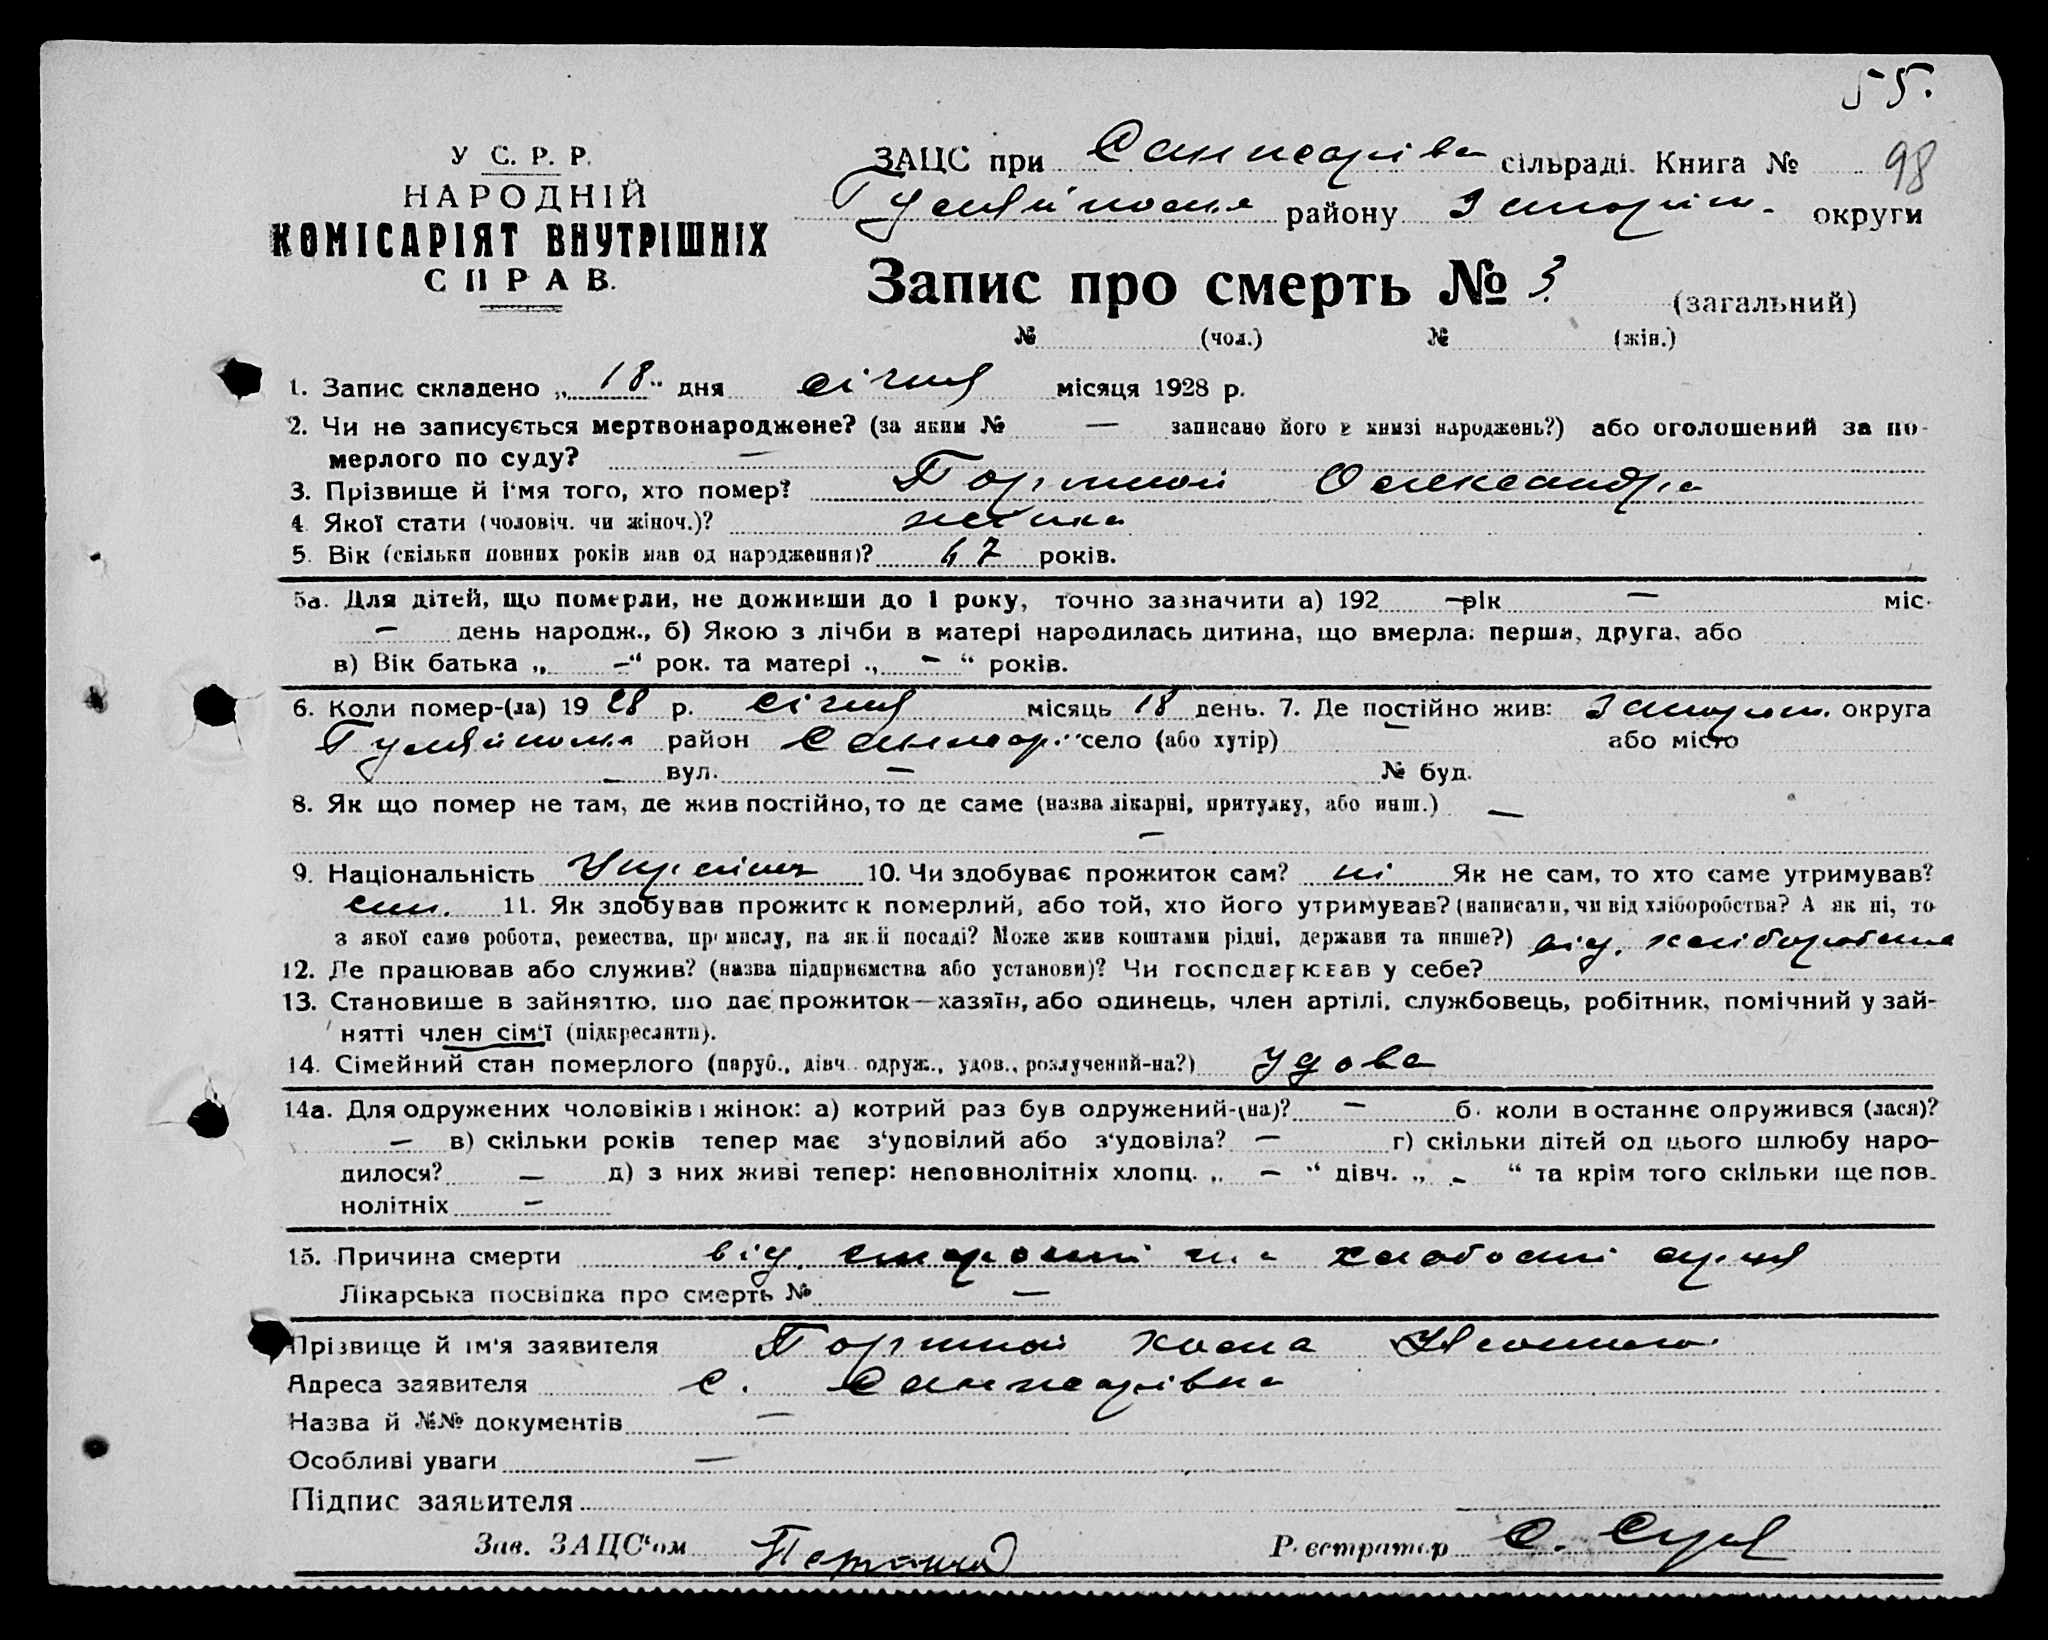 55.
У С. Р. Р.
НАРОДНІЙ
КОМІСАРІЯТ ВНУТРІШНІХ
СПРАВ.
ЗАЦС при Санжарівс сільраді. Книга № 98
Гуляйпольс району Запоріж. округи
Запис про смерть № 3. (загальний)
№ (чол.) № (жін.)
1. Запис складено „ 18 “ дня січня місяця 1928 р.
2. Чи не записується мертвонароджене? (за яким № — записано його в книзі народжень?) або оголошений за по-
мерлого по суду? —
3. Прізвище й і'мя того, хто помер? Олександра
4 Якої стати (чоловіч. чи жіноч.)? жінка
5. Вік (скільки повних років мав од народження)? 67 років.
5а. Для дітей, що померли, не доживши до 1 року, точно зазначити а) 192 — рік — міс.
— день народж., б) Якою з лічби в матері народилась дитина, що вмерла: перша, друга, або
в) Вік батька „ — “ рок. та матері „ — “ років.
6. Коли помер-(ла) 19 28 р. січня місяць 18 день. 7. Де постійно жив: Запоріж. округа
Гуляйпольс район Санжар. село (або хутір) — або місто
— вул. — № буд.
8. Як що помер не там, де жив постійно, то де саме (назва лікарні, притулку, або инш.) —
—
9. Національність 10. Чи здобуває прожиток сам? ні Як не сам, то хто саме утримував?
син. 11. Як здобував прожиток померлий, або той, хто його утримував? (написати, чи від хліборобства? А як ні, то
з якої саме роботи, ремества, промислу, на якій посаді? Може жив коштами рідні, держави та инше?) від. хліборобства
12. Де працював або служив? (назва підприємства або установи)? Чи господарював у себе?
13. Становище в зайняттю, що дає прожиток—хазяїн, або одинець, член артілі, службовець, робітник, помічний у зай-
нятті член сім'ї (підкреслити).
14. Сімейний стан померлого (паруб., дівч. одруж., удов., розлучений-на?) удова
14а. Для одружених чоловіків і жінок: а) котрий раз був одружений-(на)? — б. коли востаннє одружився (лася)?
— в) скільки років тепер має з'удовілий або з'удовіла? — г) скільки дітей од цього шлюбу наро-
дилося? — д) з них живі тепер: неповнолітніх хлопц. „ — “ дівч. „ — “ та крім того скільки ще пов-
нолітніх —
15. Причина смерти від. старості та слабості серця
Лікарська посвідка про смерть № —
Прізвище й ім'я заявителя
Адреса заявителя с. Санжарівка
Назва й №№ документів —
Особливі уваги —
Підпис заявителя
Зав. ЗАЦС'ом Реєстратор С.